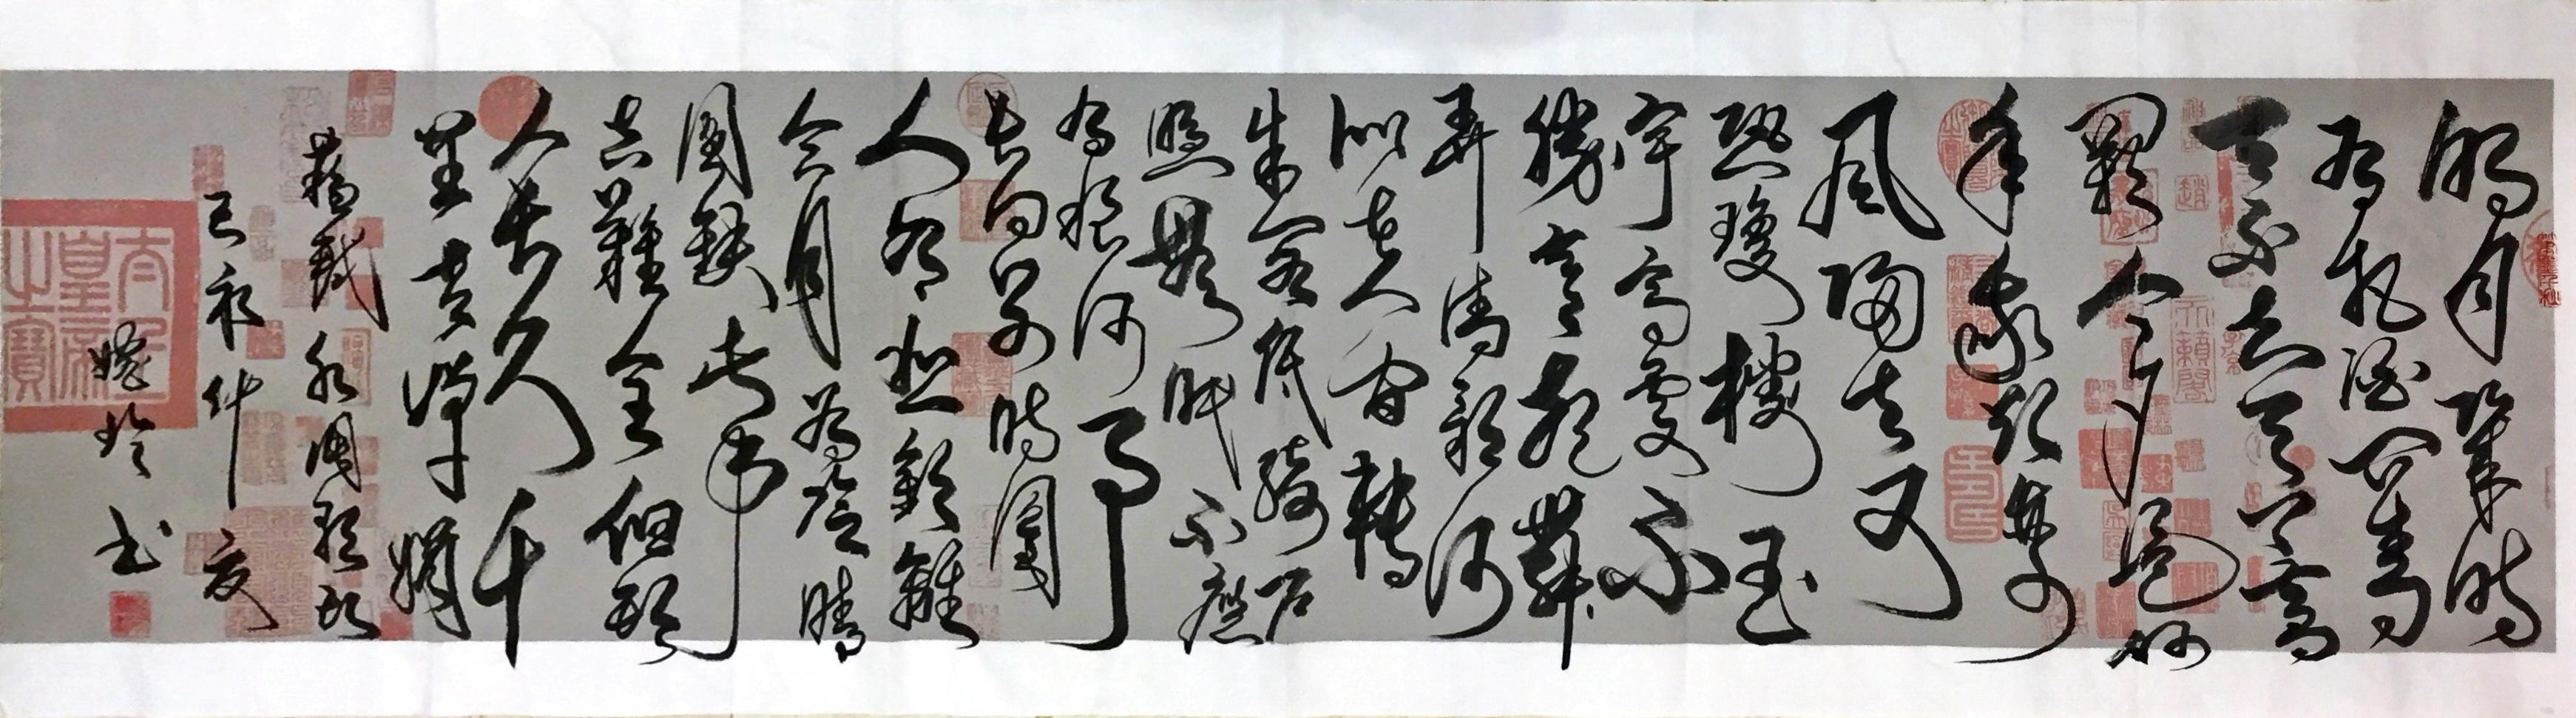 明月幾時
有把酒問青
天不知天上宮
闕今夕是何
年我欲乘
風歸去又
恐瓊樓玉
宇高處不
勝寒起舞
弄清影何
似在人間轉
朱閣低綺戶
照無眠不應
有恨何事
長向別時圓
人有悲歡離
合月有陰晴
圓缺此事
古難全但願
人長久千
里共嬋娟
蘇軾水調歌頭
己亥仲夏
玲书
太上皇帝之寶